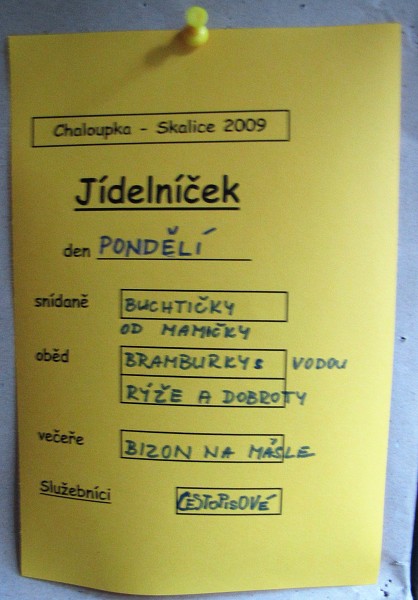 Chaloupka - Skalice 2009
Jídelníček
den PONDĚLÍ
snídaně BUCHTIČKY
OD MAMIČKY
oběd BRAMBURKY s VODOU
RÝŽE A DOBROTY
večeře BIZON NA MÁSLE
Služebníci CESTOPISOVÉ